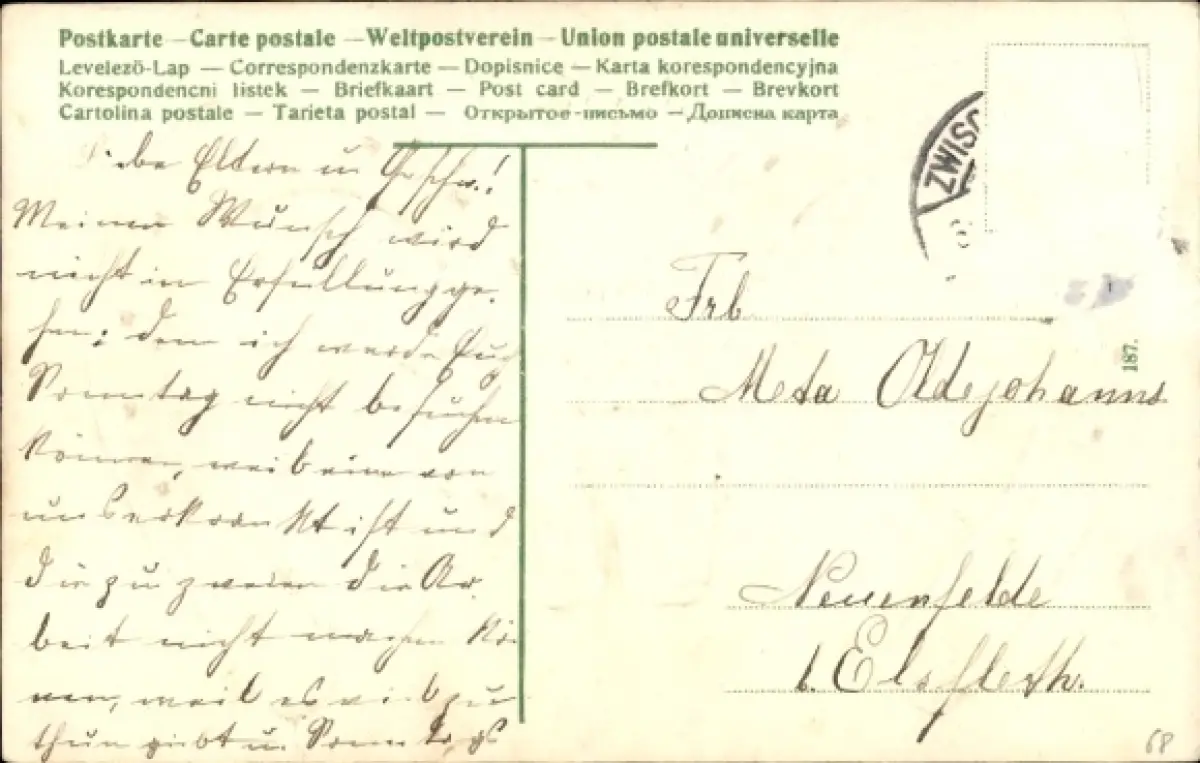 Postkarte — Carte postale — Weltpostverein — Union postale universelle
Levelező-Lap — Correspondenzkarte — Dopisnice — Karta korespondencyjna
Korespondencni listek — Briefkaart — Post card — Brefkort — Brevkort
Cartolina postale — Tarieta postal — Открытое письмо — Дописна карта
ZWISC
Eltern u. Geschw.!
Meinen Wunsch wird
nicht in Erfüllung ge-
hen; denn ich werde Euch
Sonntag nicht besuchen
können, weil eine von
uns erkrankt ist und
die zu zweien die Ar-
beit nicht machen kön-
nen, weil es viel zu
thun giebt u. Sonntags
Frl
Meta Oldejohanns
187.
Neuenfelde
b. Elsfleth.
68